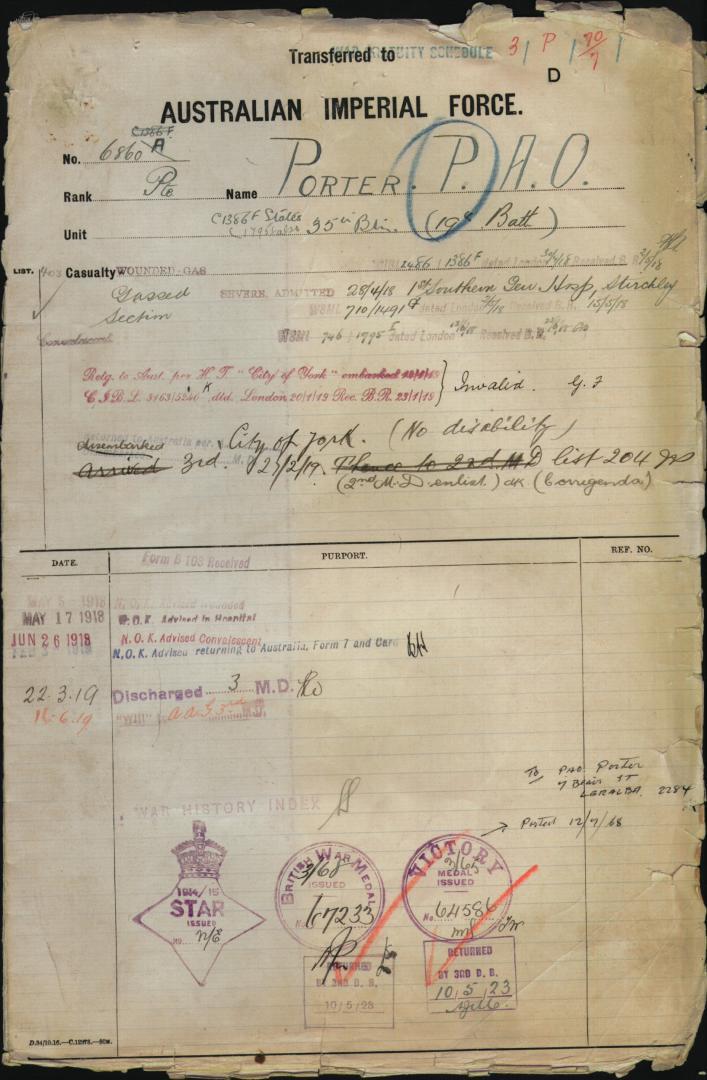 Transferred to
WAR GRATUITY SCHEDULE 3 / P / 70/7 /
D
AUSTRALIAN IMPERIAL FORCE.
C1386F
No. 6860 A
Rank Pte Name PORTER. P. A. O.
C1386F States
Unit 35th Btn. (19th Batt)
LIST. 403 Casualty WOUNDED-GAS
W3ML 2486 / 1386F dated London 30/4/18 Received B.R. 2/5/18
Gassed SEVERE, ADMITTED 28/4/18 1st Southern Gen Hosp, Stirchley
Section W3ML 710/1491 dated London Received B.R. 15/5/18
Convalescent W3ML 746 / 1795 F dated London Received B.R.
Retg. to Aust. per H.T. "City of York" embarked
C.I.B.L. 3163/5240 K dtd. London 20/1/19 Rec. B.R. 23/1/19 } Invalid. G. F
Returned to Australia per
disembarked City of York. (No disability)
arrived 3rd. M.D. 27/2/19. Thence to 2nd M D list 204
(2nd M. D. enlist.) (Corrigenda)
DATE. PURPORT. REF. NO.
Form B 103 Received
MAY 5 - 1918 N.O.K. Advised Wounded
MAY 17 1918 N.O.K. Advised in Hospital
JUN 26 1918 N.O.K. Advised Convalescent
FEB 3 1919 N.O.K. Advised returning to Australia, Form 7 and Card
22.3.19 Discharged 3 M.D.
16.6.19 "Will" 3rd M.D.
To PAO Porter
7 Blair ST
LARALBA. 2284
→ Posted 12/7/68
WAR HISTORY INDEX
1914/15
STAR
ISSUED
NO. N/E
BRITISH WAR MEDAL
3/68
ISSUED
No. 67233
VICTORY
MEDAL
ISSUED
No. 64586
RETURNED
BY 3RD D. B.
10/5/23
RETURNED
BY 3RD D. B.
10/5/23
D.34/10.16.—C.12673.—50M.